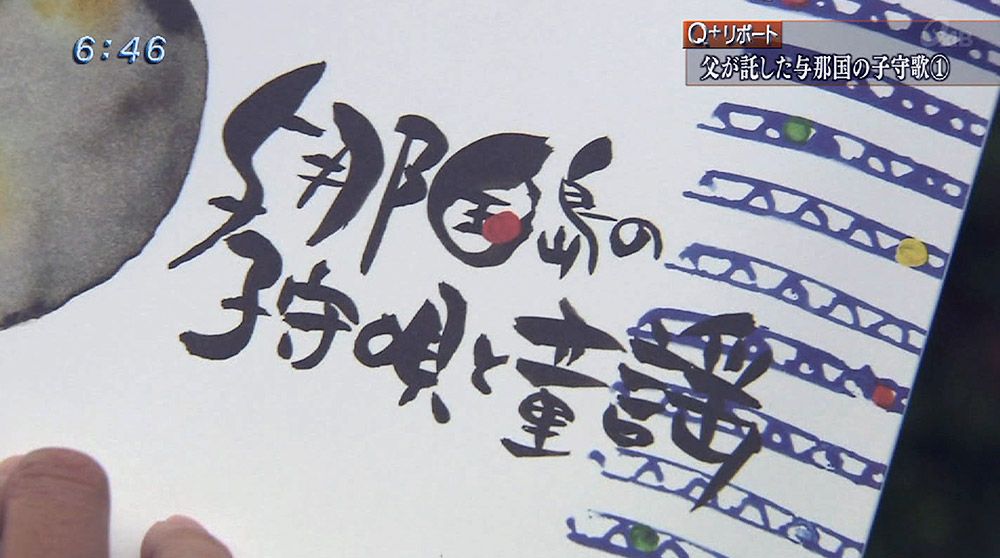 6:46
Q+リポート
父が託した与那国の子守歌①
与那国島の
子守唄と童謡